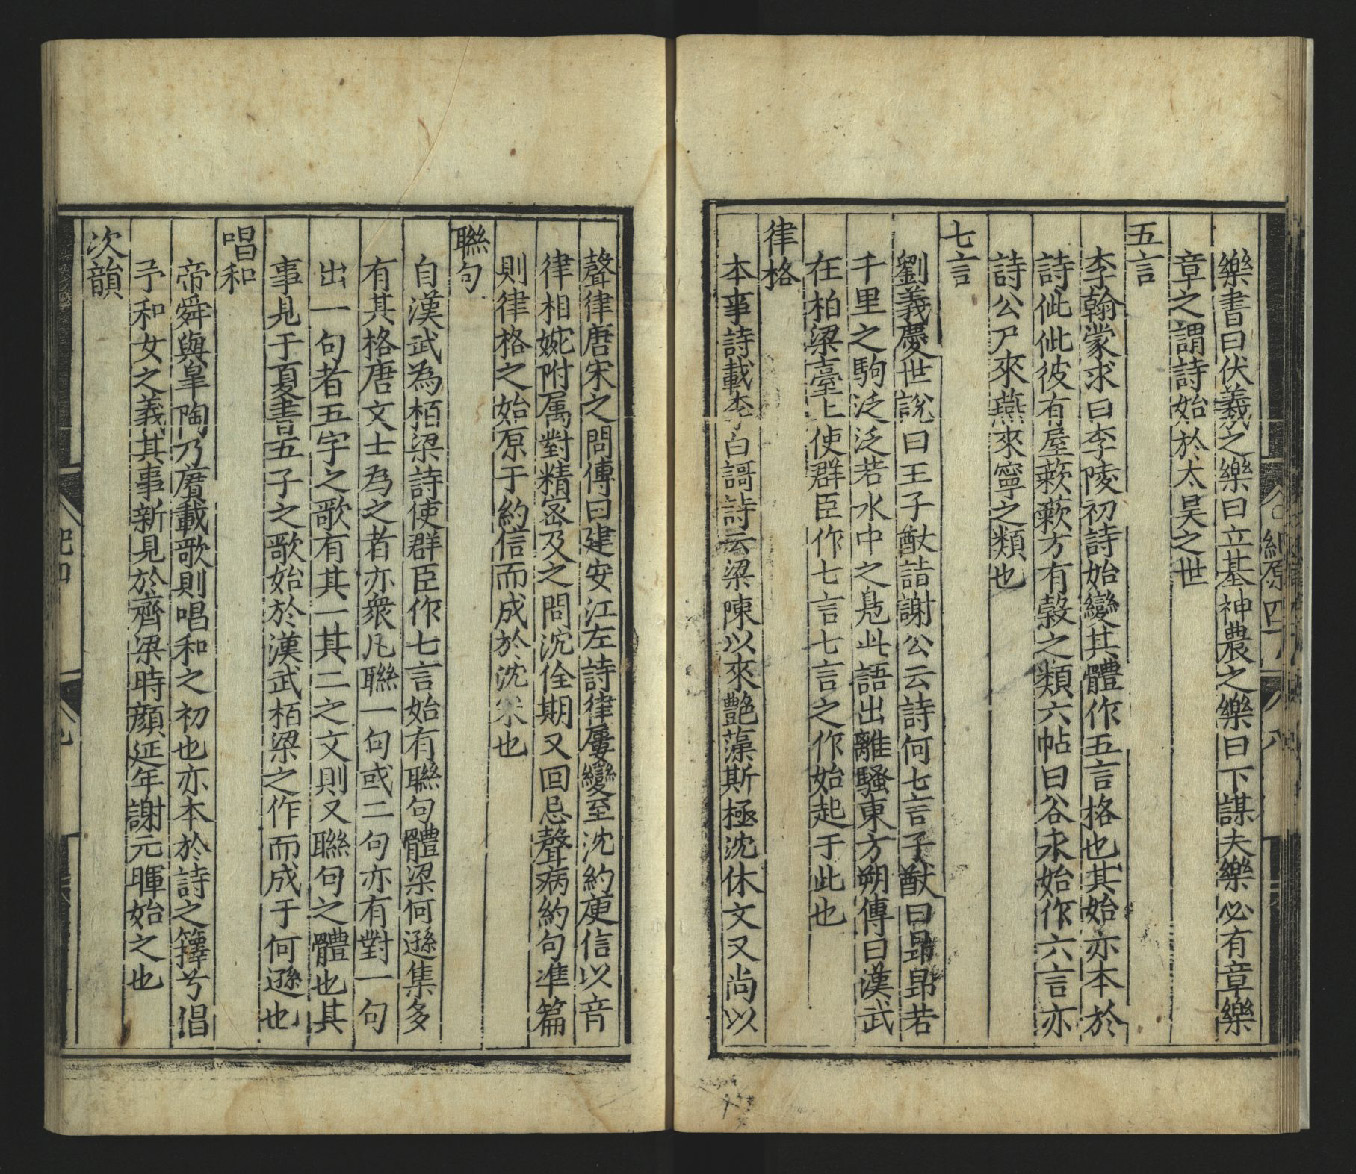 樂書曰伏羲之樂曰立基神農之樂曰下謀夫樂必有章樂
章之謂詩始於太昊之世
五言
李翰蒙求曰李陵初詩始變其體作五言格也其始亦本於
詩佌佌彼有屋蔌蔌方有穀之類六帖曰谷永始作六言亦
詩公尸來燕來寧之類也
七言
劉義慶世說曰王子猷詣謝公云詩何七言子猷曰昻昻若
千里之駒泛泛若水中之鳬此語出離騷東方朔傳曰漢武
在柏梁臺上使群臣作七言七言之作始起于此也
律格
本事詩載李白謌詩云梁陳以來艷藻斯極沈休文又尚以
聲律唐宋之問傳曰建安江左詩律屢變至沈約庾信以音
律相婉附属對精宻及之問沈佺期又回忌聲病約句準篇
則律格之始原于約信而成於沈宋也
聯句
自漢武為栢梁詩使群臣作七言始有聯句體梁何遜集多
有其格唐文士為之者亦衆凡聯一句或二句亦有對一句
出一句者五字之歌有其一其二之文則又聯句之體也其
事見于夏書五子之歌始於漢武栢梁之作而成于何遜也
唱和
帝舜與臯陶乃賡載歌則唱和之初也亦本於詩之籜兮倡
予和女之義其事新見於齊梁時顔延年謝元暉始之也
次韻